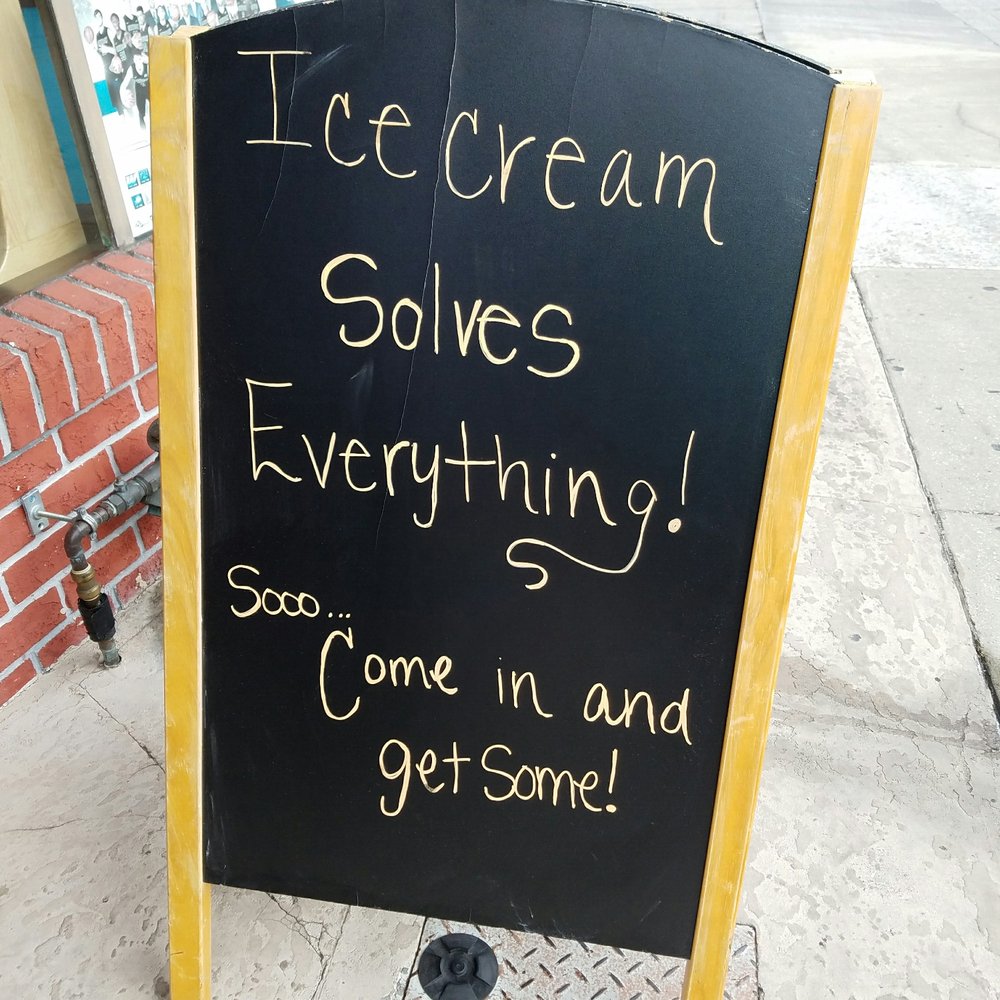 Ice cream
Solves
Everything!
Sooo...
Come in and
get Some!